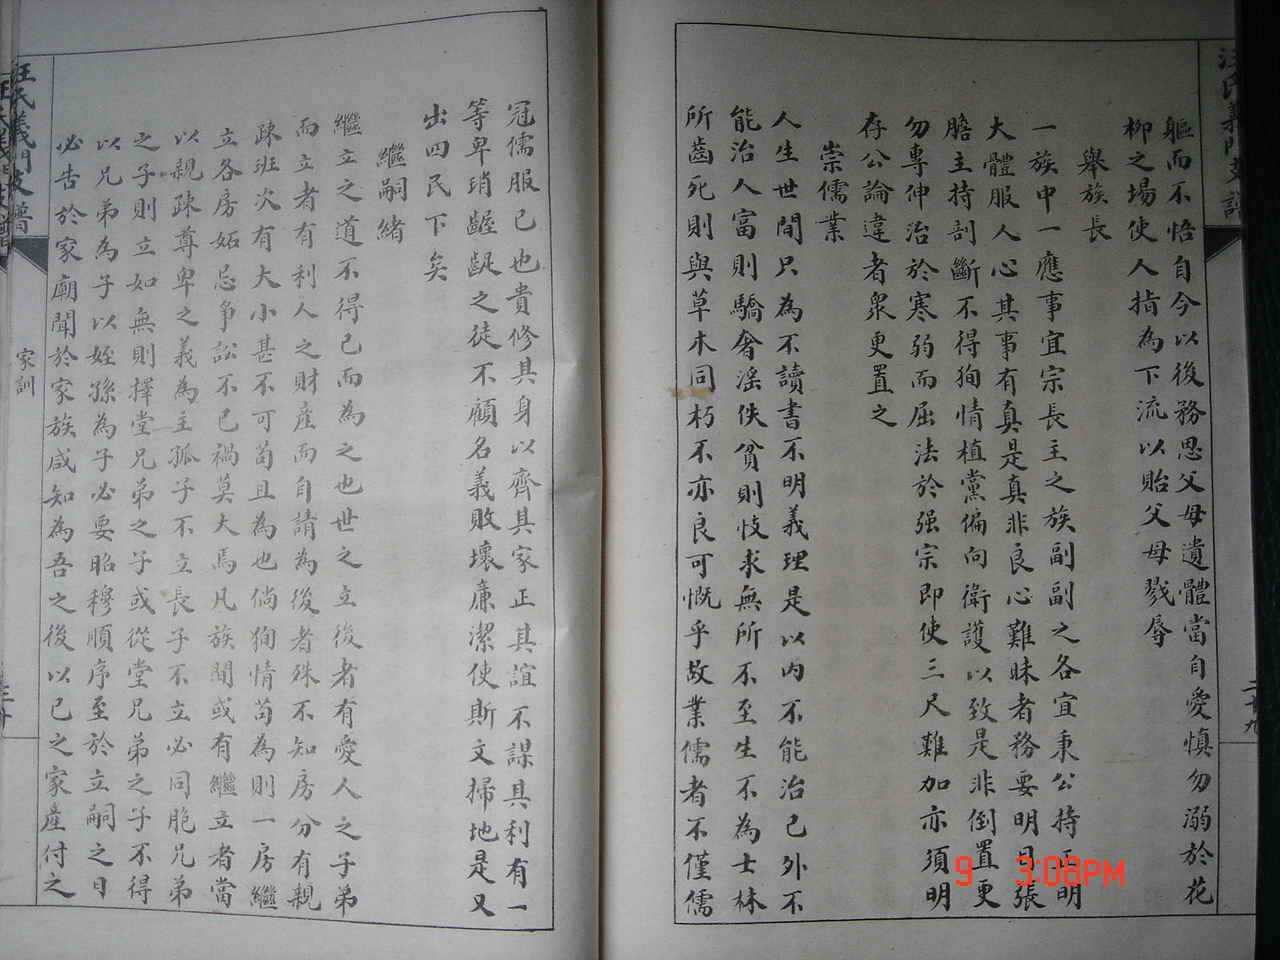 汪氏義門支譜
二十九
軀而不悟自今以後務思父母遺體當自愛慎勿溺於花
柳之場使人指為下流以貽父母戮辱
舉族長
一族中一應事宜宗長主之族副副之各宜秉公持正明
大體服人心其事有真是真非良心難昧者務要明目張
膽主持剖斷不得狥情植黨偏向衛護以致是非倒置更
勿專伸治於寒弱而屈法於强宗即使三尺難加亦須明
存公論違者衆更置之
崇儒業
人生世間只為不讀書不明義理是以內不能治己外不
能治人富則驕奢滛佚貧則忮求無所不至生不為士林
所齒死則與草木同朽不亦良可慨乎故業儒者不僅儒
冠儒服已也貴修其身以齊其家正其誼不謀其利有一
等卑瑣齷齪之徒不顧名義敗壞廉潔使斯文掃地是又
出四民下矣
繼嗣緒
繼立之道不得已而為之也世之立後者有愛人之子弟
而立者有利人之財產而自請為後者殊不知房分有親
疎班次有大小甚不可苟且為也倘狥情苟為則一房繼
立各房妬忌爭訟不已禍莫大焉凡族間或有繼立者當
以親疎尊卑之義為主孤子不立長子不立必同胞兄弟
之子則立如無則擇堂兄弟之子或從堂兄弟之子不得
以兄弟為子以姪孫為子必要昭穆順序至於立嗣之日
必告於家廟聞於家族咸知為吾之後以已之家產付之
汪氏義門支譜
家訓
9 3:08PM